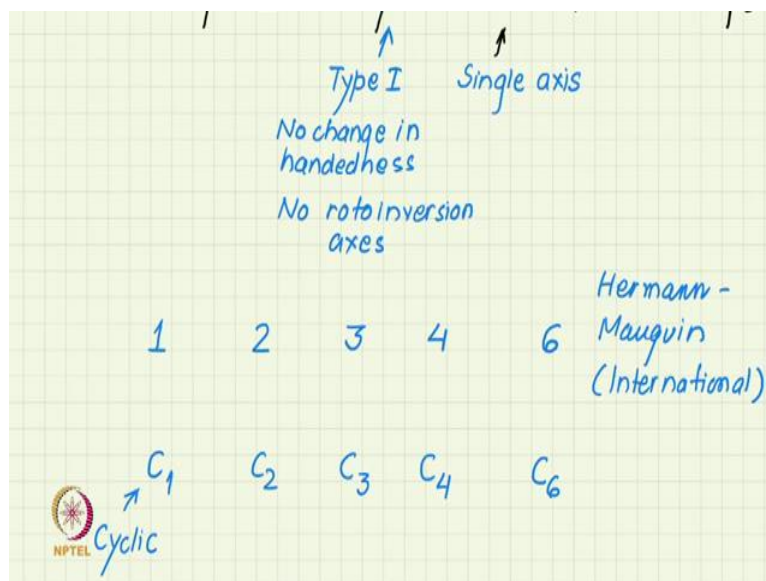 Type I Single axis
No change in
handedness
No rotoinversion
axes
Hermann -
1 2 3 4 6 Mauguin
(International)
C1 C2 C3 C4 C6
NPTEL Cyclic